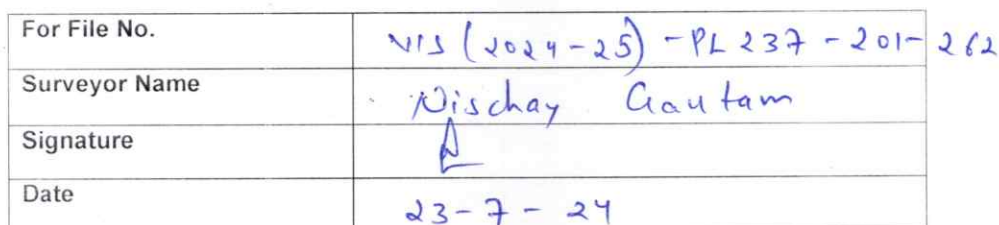 For File No. VIS (2024-25) - PL 237 - 201- 262
Surveyor Name Nischay Gautam
Signature
Date 23-7-24